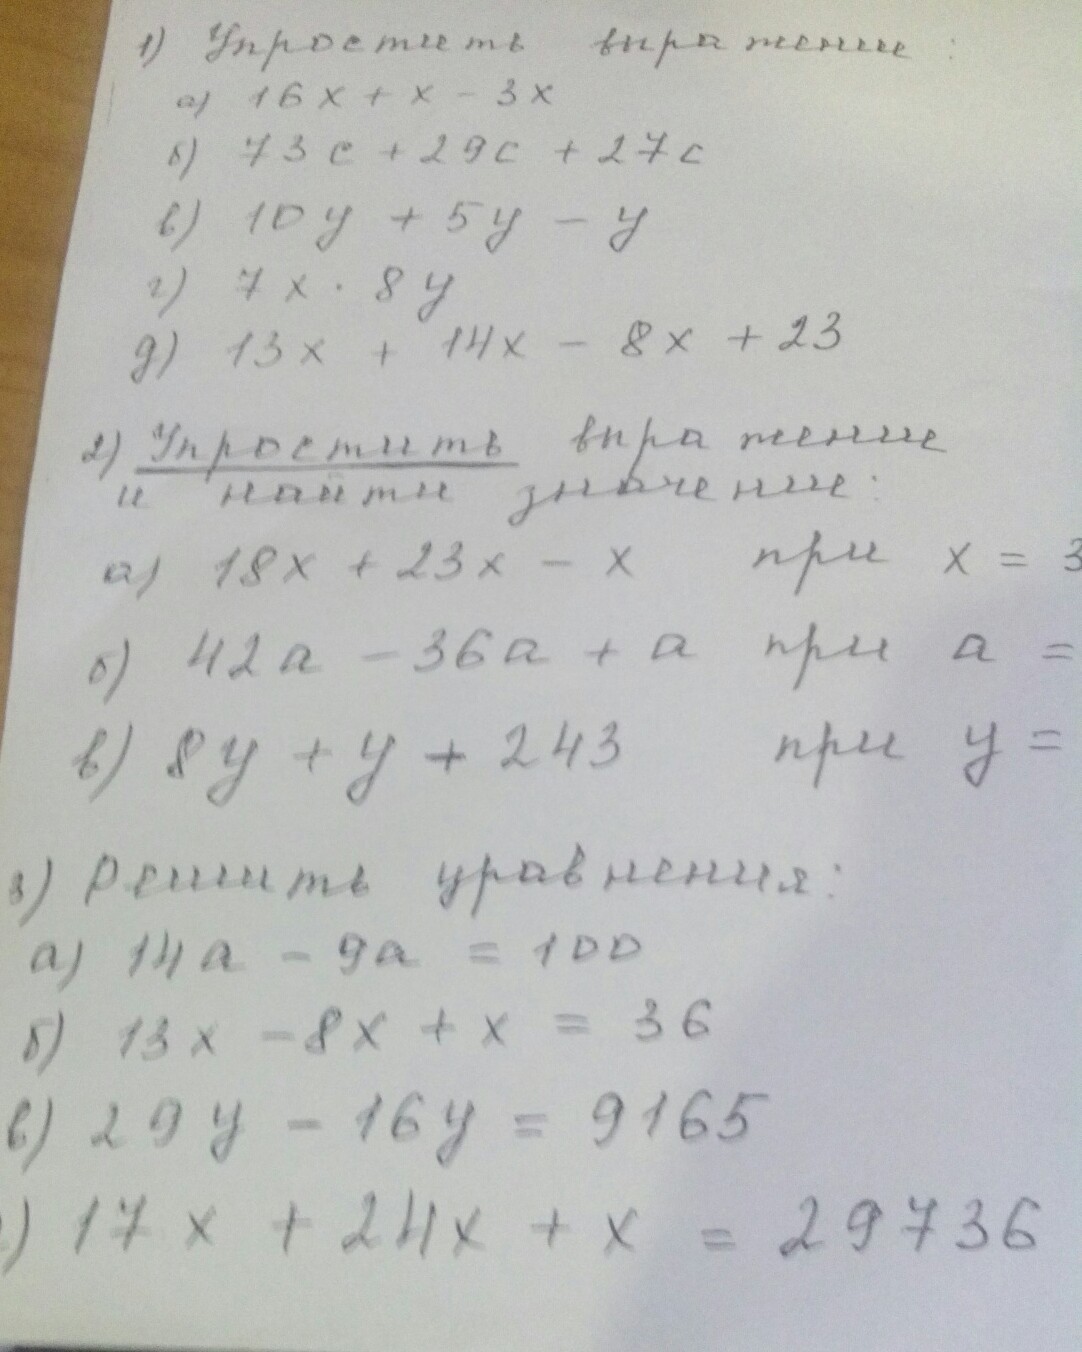 1) Упростить выражение:
а) 16x + x - 3x
б) 73c + 29c + 27c
в) 10y + 5y - y
г) 7x · 8y
д) 13x + 14x - 8x + 23
2) Упростить выражение
и найти значение:
а) 18x + 23x - x при x = 3
б) 42a - 36a + a при a =
в) 8y + y + 243 при y =
3) Решить уравнения:
а) 14a - 9a = 100
б) 13x - 8x + x = 36
в) 29y - 16y = 9165
) 17x + 24x + x = 29736